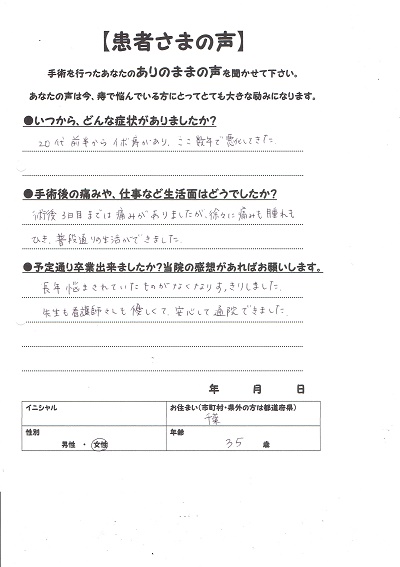 【患者さまの声】
手術を行ったあなたのありのままの声を聞かせて下さい。
あなたの声は今、痔で悩んでいる方にとってとても大きな励みになります。
●いつから、どんな症状がありましたか?
20代前半からイボ痔があり、ここ数年で悪化してきた。
●手術後の痛みや、仕事など生活面はどうでしたか?
術後3日目までは痛みがありましたが、徐々に痛みも腫れも
ひき、普段通りの生活ができました。
●予定通り卒業出来ましたか?当院の感想があればお願いします。
長年悩まされていたものがなくなりすっきりしました。
先生も看護師さんも優しくて、安心して通院できました。
年 月 日
イニシャル
お住まい(市町村・県外の方は都道府県)
千葉
性別
男性 ・ 女性
年齢
35 歳